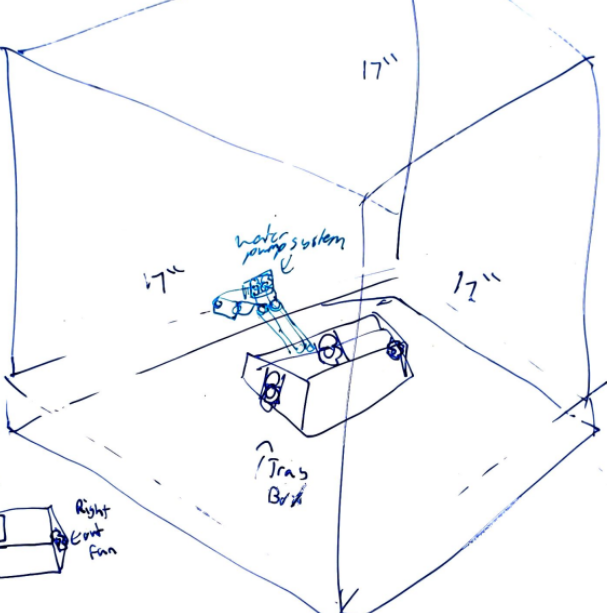 17"
water
pump system
17"
17"
Tray
Right
Fan